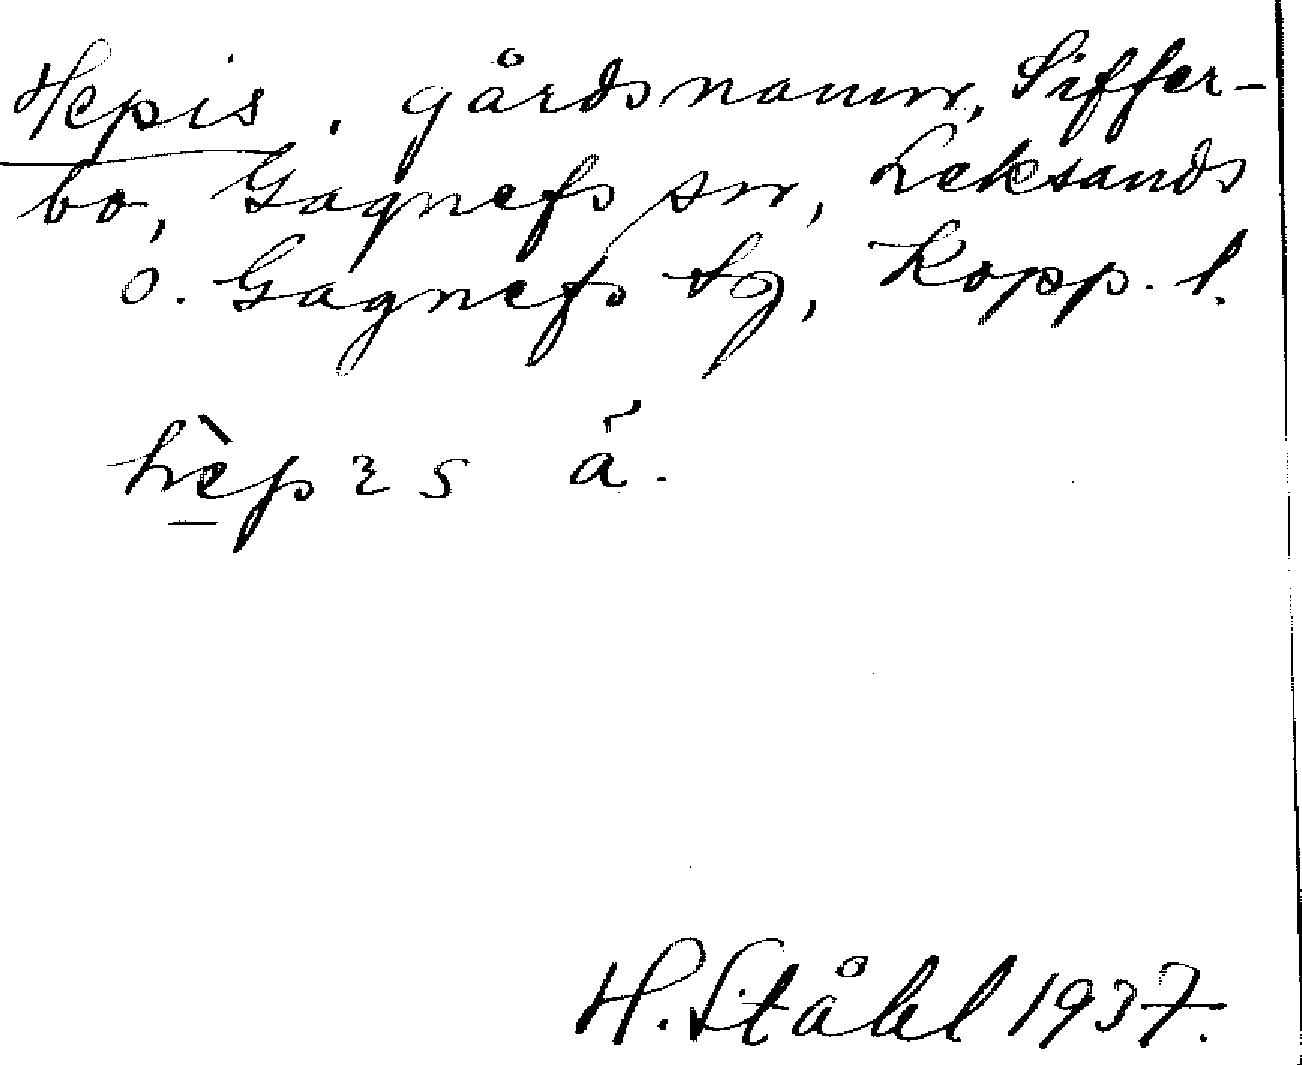 Hepis, gårdsnamn, Siffer-
bo, Gagnefs sn, Leksands
o. Gagnefs tg, Kopp. l.
hèpɜs ā̃.
H. Ståhl 1937.